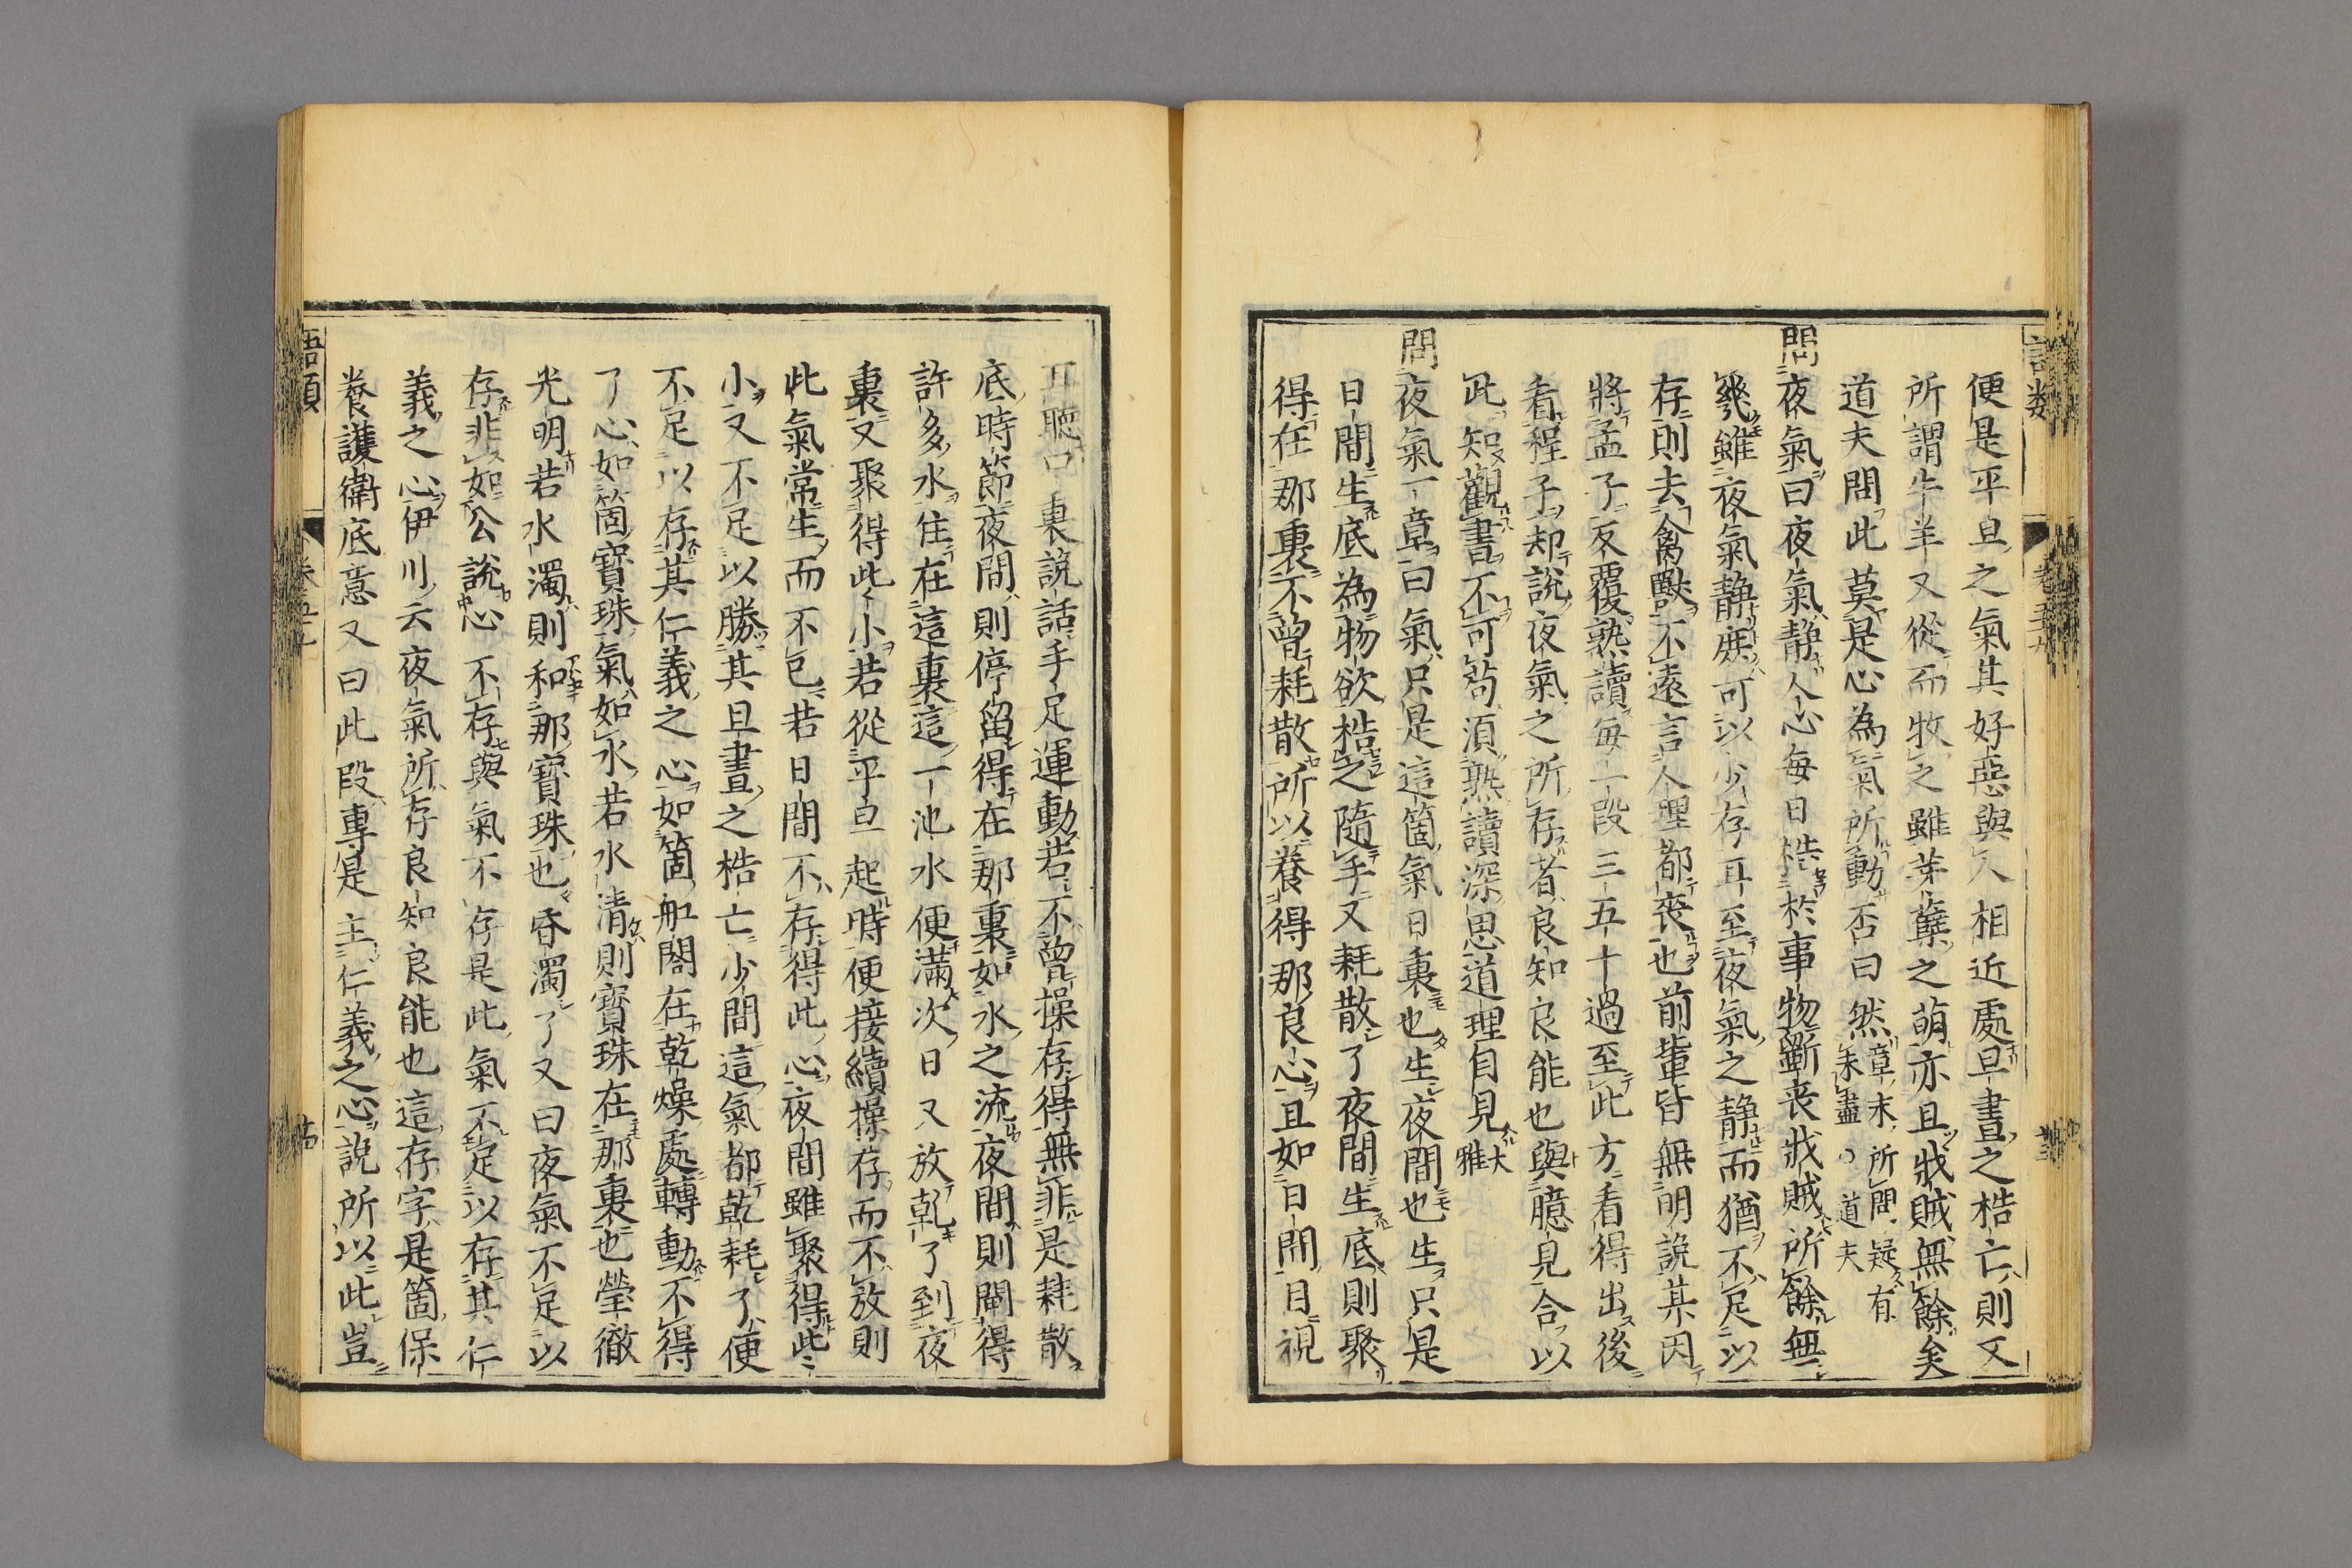 便是平旦之氣其好惡與人相近處旦晝之梏亡則又
所謂牛羊又從而牧之雖芽蘖之萌亦且戕賊無餘矣
道夫問此莫是心為氣所動否曰然章末所問疑有未盡○道夫
問夜氣曰夜氣靜人心每日梏於事物斵丧戕賊所餘無
幾雖夜氣靜庶可以少存耳至夜氣之靜而猶不足以
存則去禽獸不遠言人理都丧也前輩皆無明説某因
將孟子反覆熟讀每一段三五十過至此方看得出後
看程子却說夜氣之所存者良知良能也與臆見合以
此知觀書不可苟湏熟讀深思道理自見大雅
問夜氣一章曰氣只是這箇氣日裏也生夜間也生只是
日間生底為物欲梏之隨手又耗散了夜間生底則聚
得在那裏不曾耗散所以養得那良心且如日間目視
耳聽口裏說話手足運動若不曾操存得無非是耗散
底時節夜間則停留得在那裏如水之流夜間則閘得
許多水住在這裏這一池水便滿次日又放乾了到夜
裏又聚得此小若從平旦起時便接續操存而不放則
此氣常生而不已若日間不存得此心夜間雖聚得些
小又不足以勝其旦晝之梏亡少間這氣都乾耗了便
不足以存其仁義之心如箇舡閣在乾燥處轉動不得
了心如箇寶珠氣如水若水清則寶珠在那裏也瑩徹
光明若水濁則和那寶珠也昏濁了又曰夜氣不足以
存非如公說心不存與氣不存是此氣不足以存其仁
義之心伊川云夜氣所存良知良能也這存字是箇保
養護衛底意又曰此段專是主仁義之心說所以此豈
語類
卷五十九